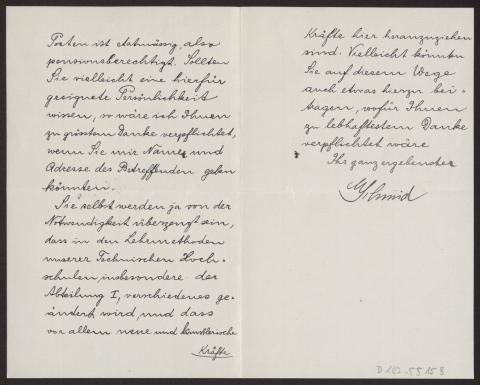 Posten ist etatmässig, also
pensionsberechtigt. Sollten
Sie vielleicht eine hierfür
geeignete Persönlichkeit
wissen, so wäre ich Ihnen
zu grösstem Danke verpflichtet,
wenn Sie mir Name und
Adresse des Betreffenden geben
könnten.
Sie selbst werden ja von der
Notwendigkeit überzeugt sein,
dass in den Lehrmethoden
unserer Technischen Hoch-
schulen, insbesondere der
Abteilung I, verschiedenes ge-
ändert wird, und dass
vor allem neue und künstlerische
Kräfte
Kräfte hier heranzuziehen
sind. Vielleicht könnten
Sie auf diesem Wege
auch etwas hierzu bei-
tragen, wofür Ihnen
zu lebhaftestem Danke
verpflichtet wäre
Ihr ganz ergebenster
Schmid
D 102.5515 8